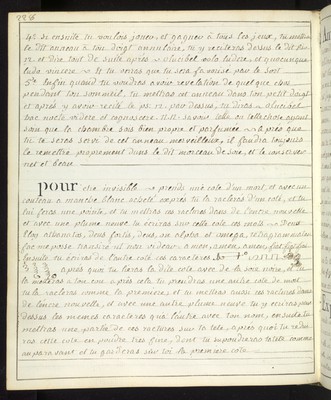 4° si ensuite tu voulois jouer, et gagner à tous les jeux, tu mettras
le dit anneau à ton doigt annulaire, tu y reciteras dessus le dit
et dire tout de suite après
vincere. Et tu verras que tu sera favorisé par le sort
5° Enfin quand tu voudras avoir revelation de quelque chose
pendant ton sommeil, tu mettras cet anneau dans ton petit doigt
et après y avoir recité le ps: 12. par dessus, tu diras
hac nocte videre et cognoscere. N. il
soin que la chambre soit bien propre et parfumée. après que
tu te seras servi de cet anneau merveilleux, il faudra toujours
le remettre proprement dans le dit morceau de soie, et le conserver
net et beau
pour etre invisible. prends une cote d'un mort, et avec un
couteau a manche blanc, acheté exprès tu la racleras d'un coté, et tu
lui feras une pointe, et tu mettras ces raclures dans de l'encre nouvelle
et avec une plume neuve tu écriras sur cette cote ces mots Deus
fortis, deus, alpha et omega, tetragrammaton
fac me posse transire ut non videar. amen, amen, amen, fiat fiat fiat
Ensuite tu écriras de l'autre coté ces caracteres
après quoi tu lieras la dite cote avec de la soie noire, et tu
la mettras a ton cou. après cela tu prendras une autre cote de mort
tu la racleras comme la premiere, et tu mettras aussi ces raclures dans
de l'encre nouvelle, et avec une autre plume neuve tu y écriras par
dessus les memes caracteres qu'à l'autre avec ton nom, ensuite tu
mettras une partie de ces raclures sur ta tete, après quoi tu redui-
ras cette cote en poudre très fine, dont tu sapoudreras ta tete comme
auparavant et tu garderas sur toi la premiere cote.